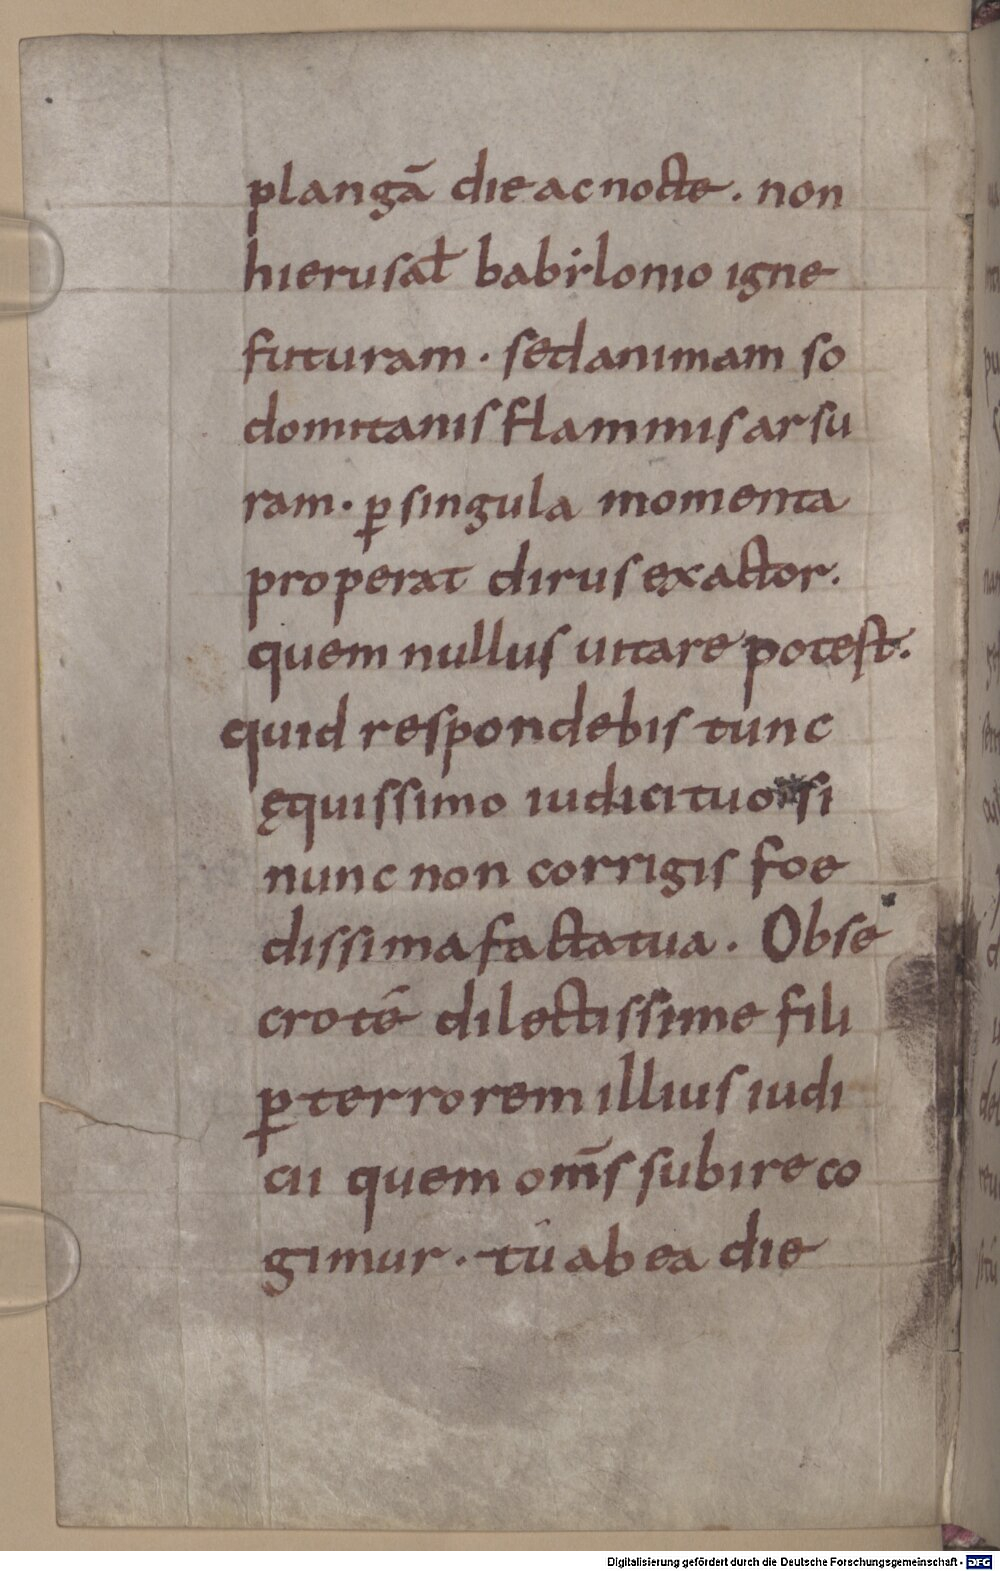 plangā die ac nocte. non
hierusał babilonio igne
futuram. sed animam so
domitanis flammis arsu
ram. ꝑ singula momenta
properat dirus exactor.
quem nullus uitare potest.
quid respondebis tunc
ęquissimo iudici tuo si
nunc non corrigis foe
dissima facta tua. Obse
cro tē dilectissime fili
ꝑ terrorem illius iudi
cii quem om̄s subire co
gimur. tū ab ea die
Digitalisierung gefördert durch die Deutsche Forschungsgemeinschaft - DFG